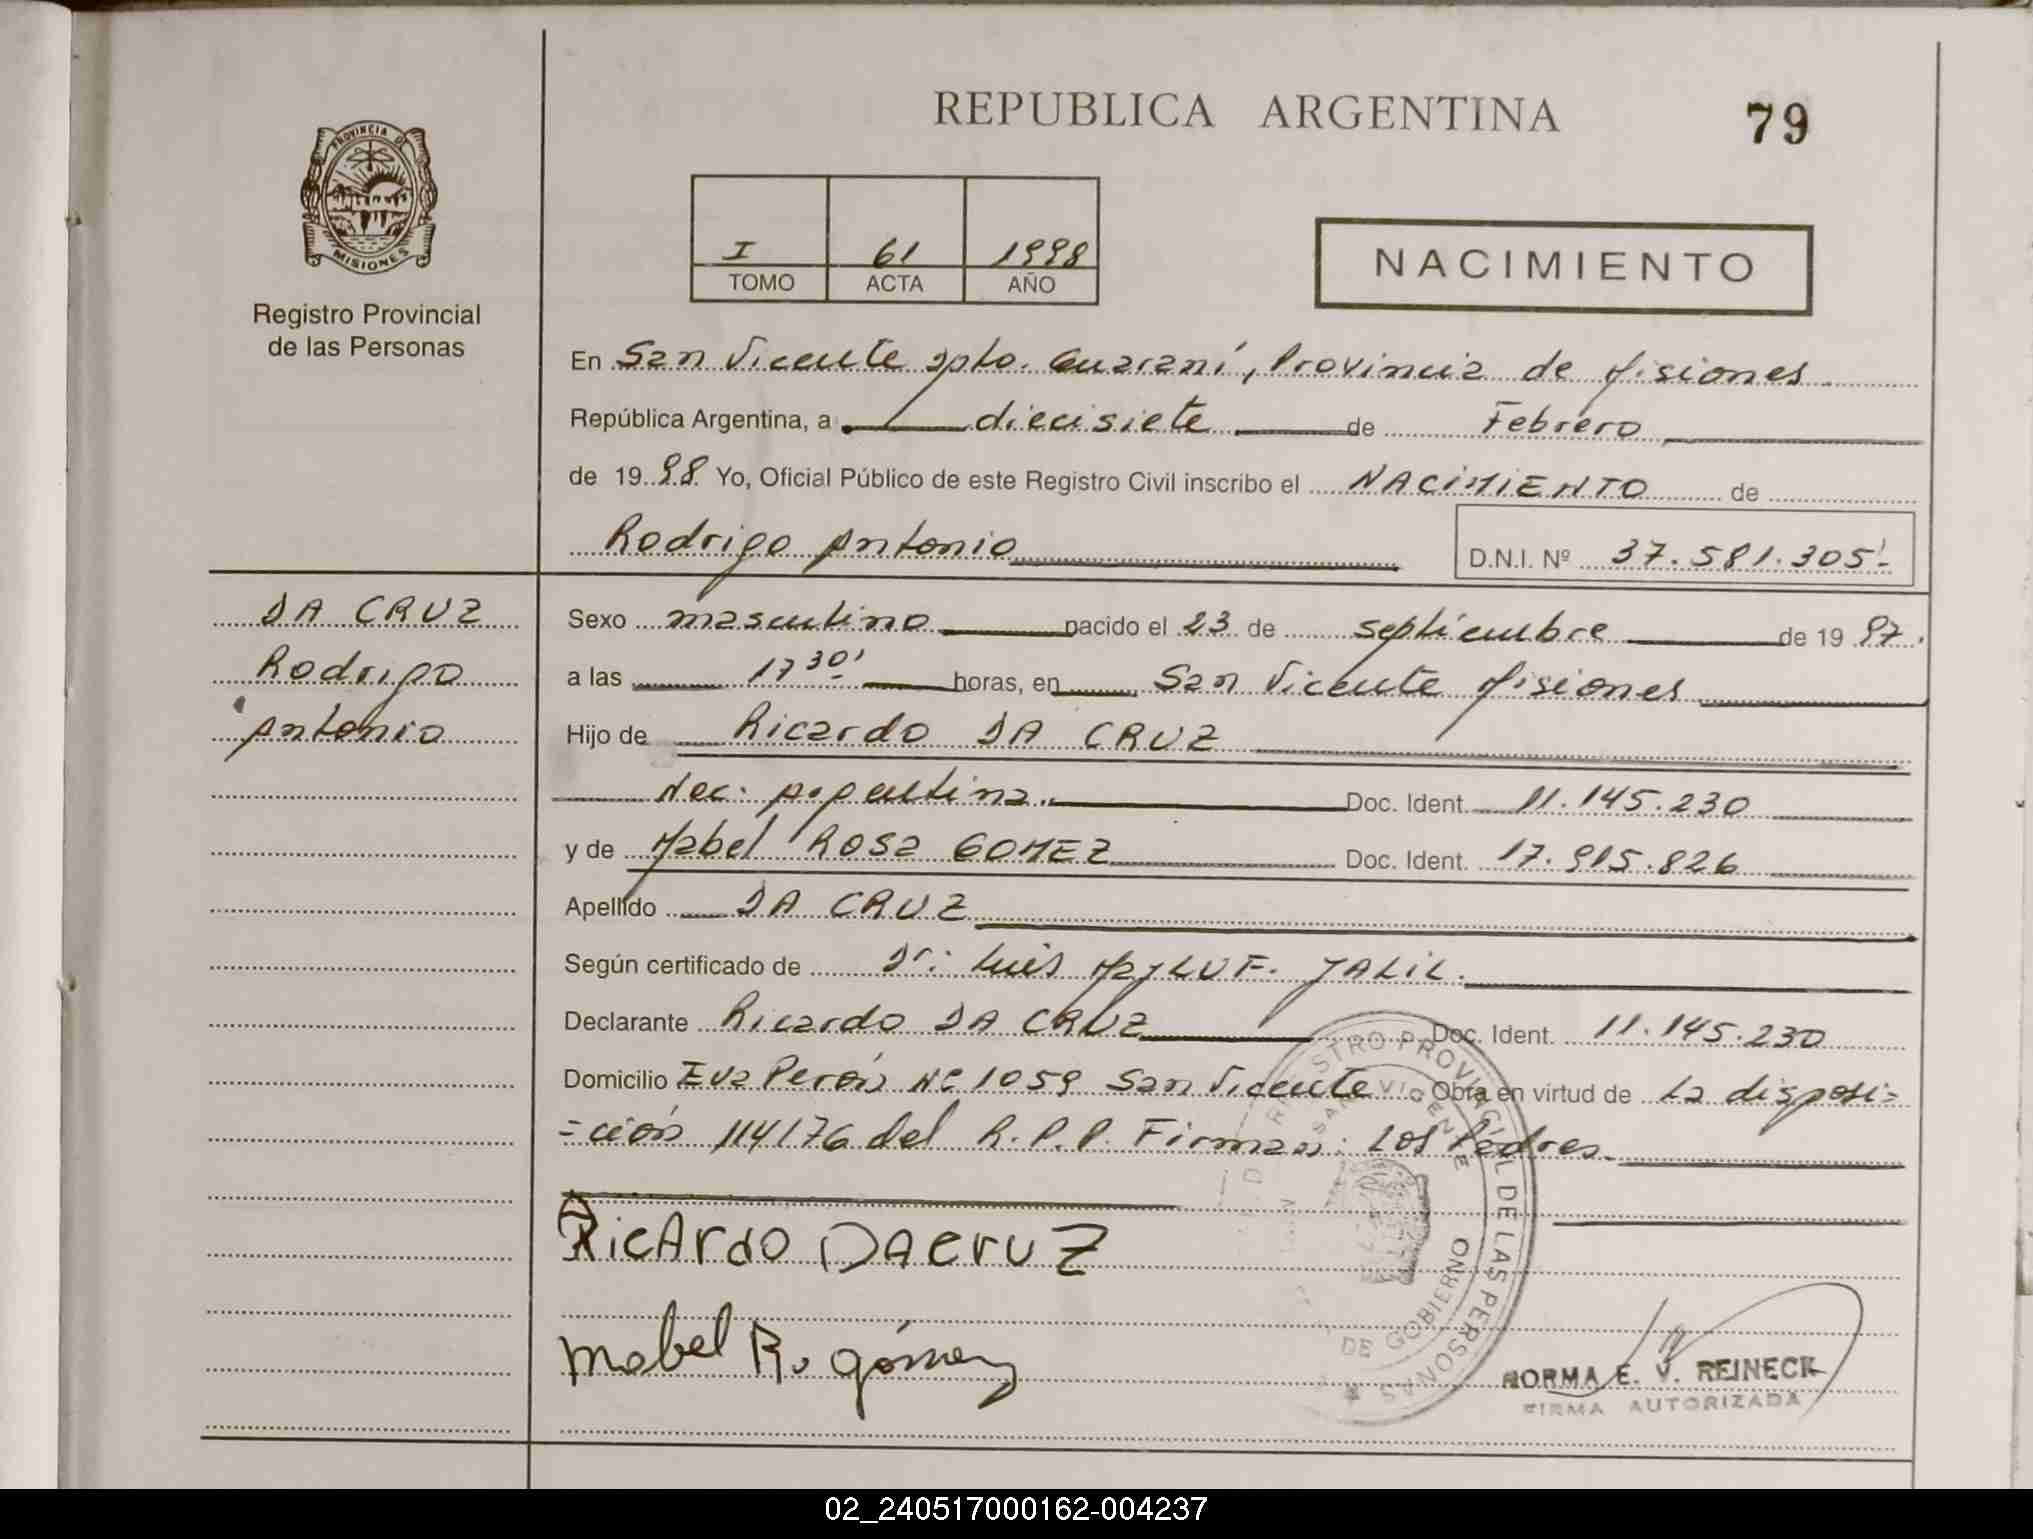 REPUBLICA ARGENTINA
79
PROVINCIA DE
MISIONES
Registro Provincial
de las Personas
I 61 1998
TOMO ACTA AÑO
NACIMIENTO
En San Vicente Dpto. Guaraní, Provincia de Misiones
República Argentina, a diecisiete de Febrero
de 1998 Yo, Oficial Público de este Registro Civil inscribo el NACIMIENTO de
Rodrigo Antonio
D.N.I. Nº 37.581.305
DA CRUZ
Rodrigo
Antonio
Sexo masculino nacido el 23 de septiembre de 1997.
a las 17 30' horas, en San Vicente Misiones
Hijo de Ricardo DA CRUZ
Nac. Argentina. Doc. Ident. 11.145.230
y de Mabel Rosa GOMEZ Doc. Ident. 17.915.826
Apellido DA CRUZ
Según certificado de Dr. Luis JALIL.
Declarante Ricardo DA CRUZ Doc. Ident. 11.145.230
Domicilio Eva Perón Nº 1059 San Vicente Obra en virtud de la disposi=
=ción 114/76 del R.P.P. Firman: Los Padres.
RicArdo DAcruZ
Mabel R. gómez
REGISTRO PROVINCIAL DE LAS PERSONAS
SAN VICENTE
DE GOBIERNO
NORMA E. V. REINECK
FIRMA AUTORIZADA
02_240517000162-004237